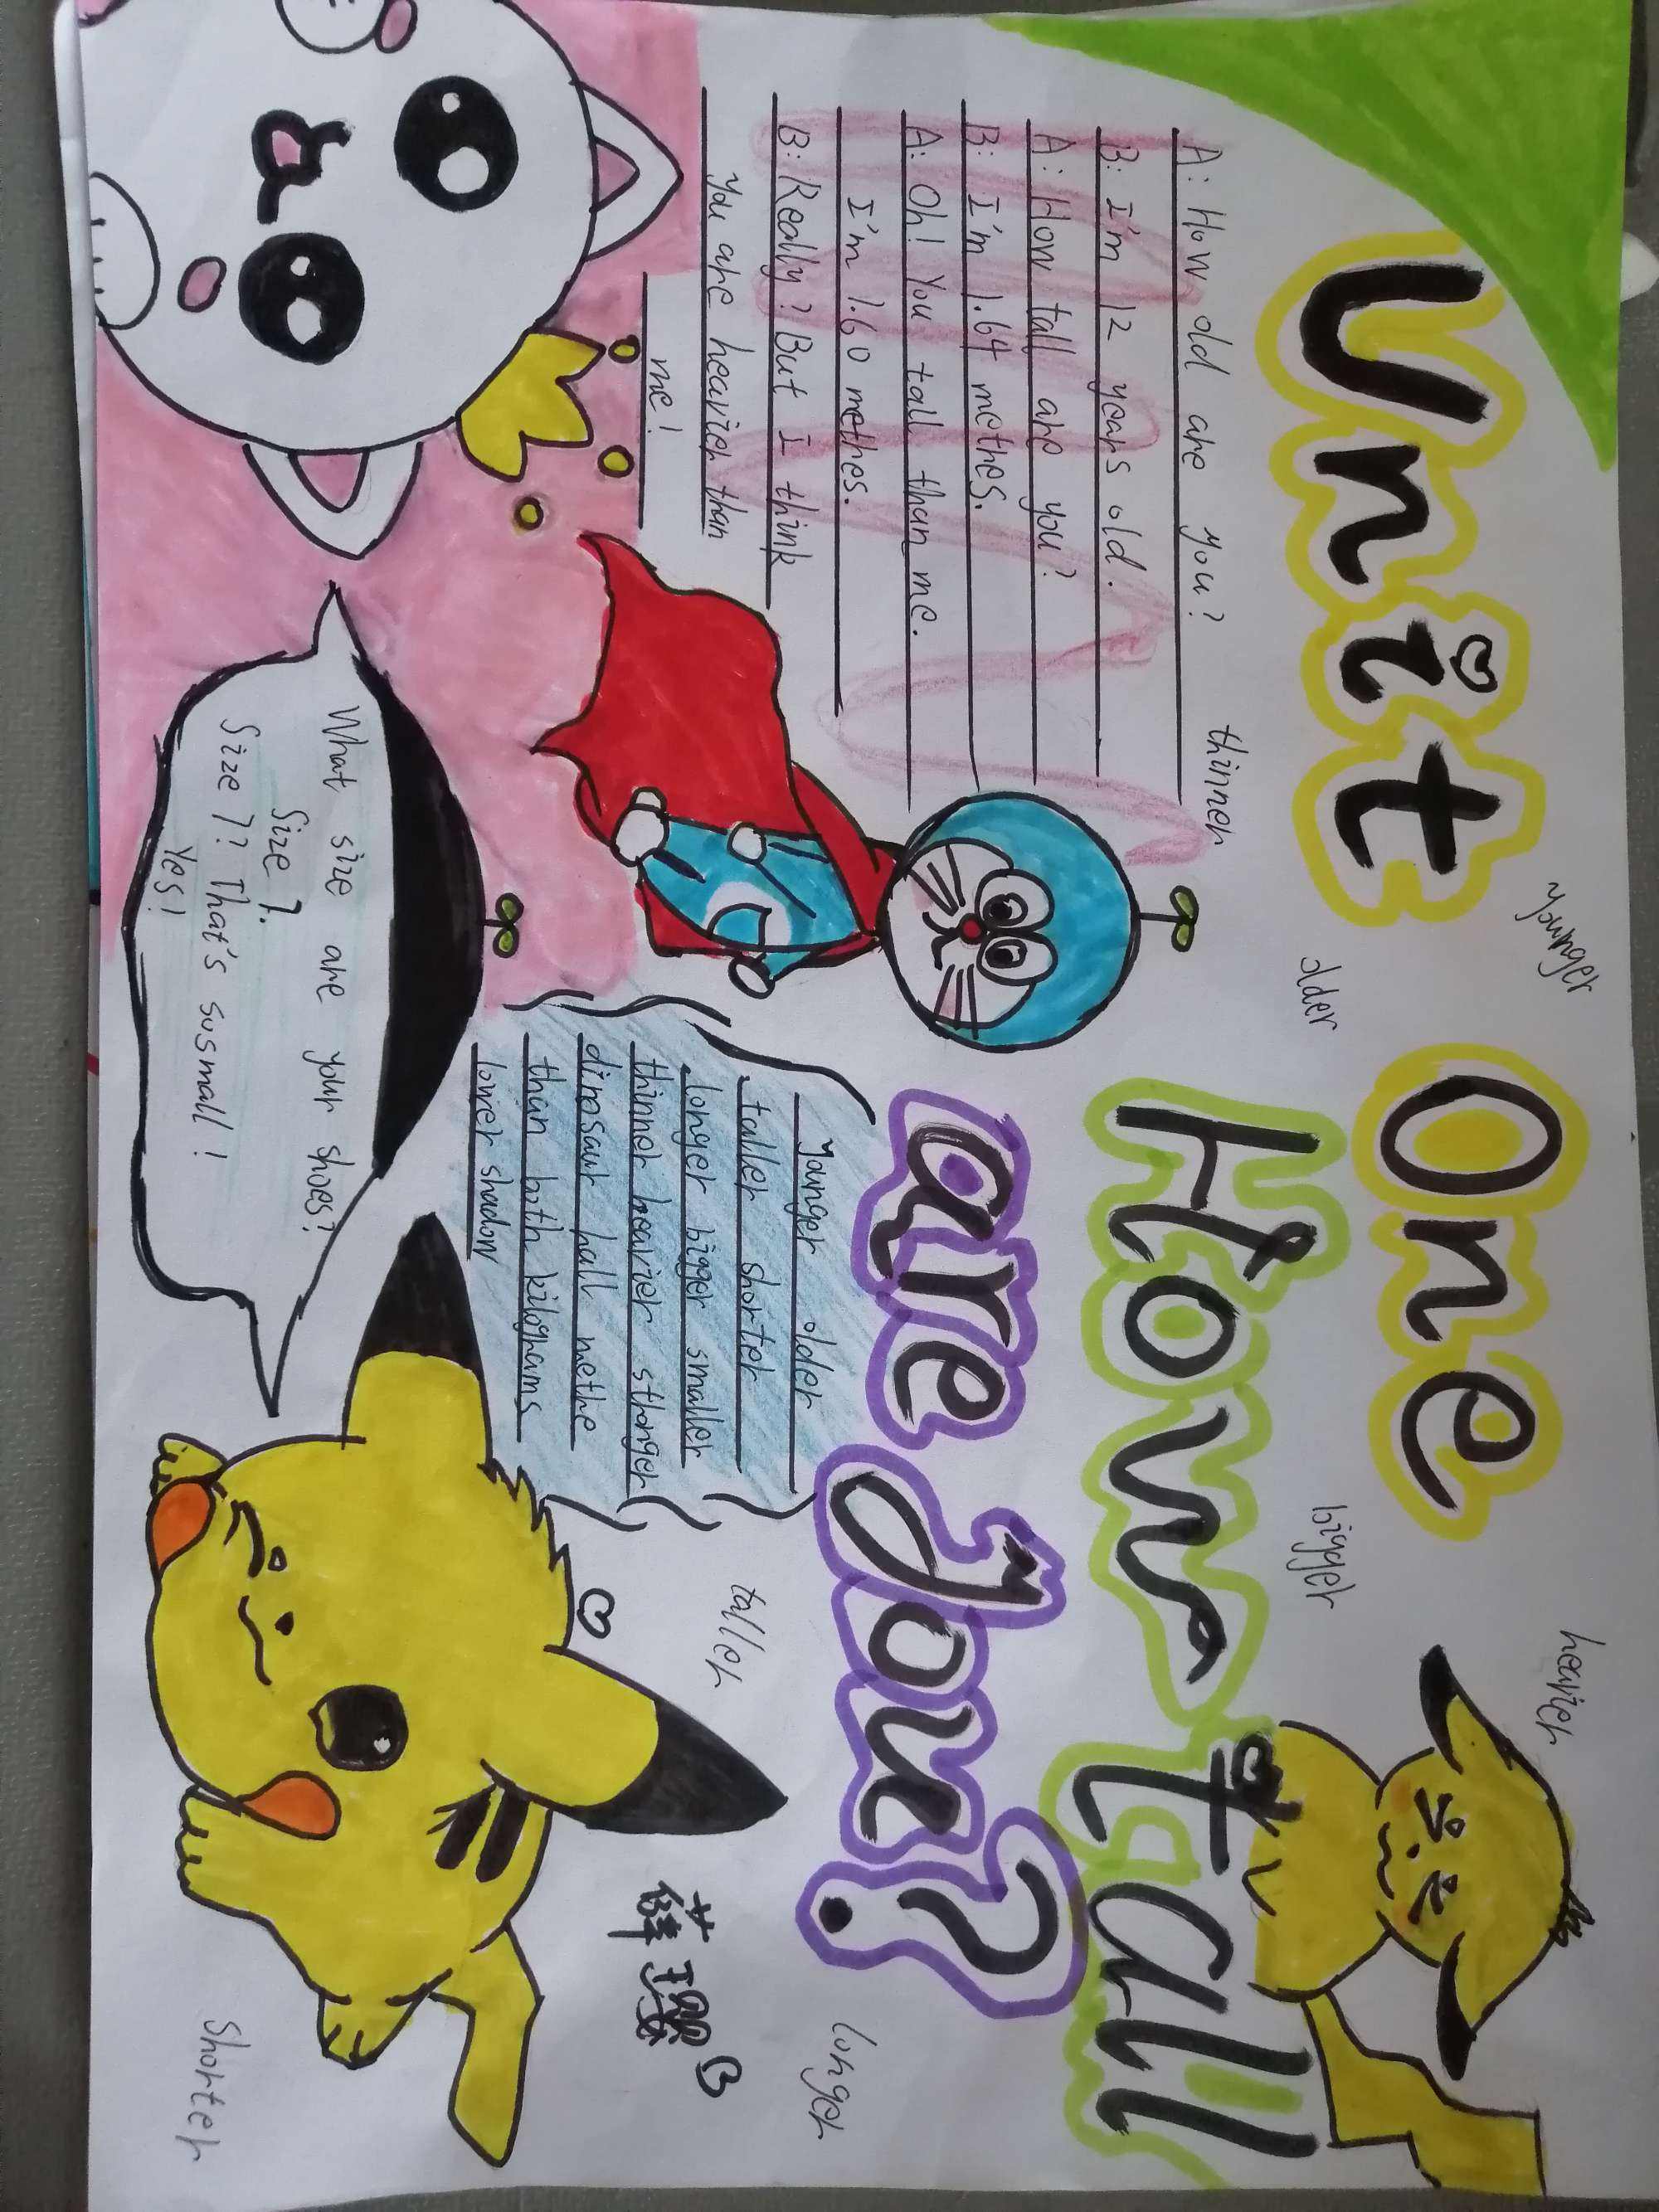 Unit One
How tall
are you?
younger
older
bigger
heavier
thinner
A: How old are you?
B: I'm 12 years old.
A: How tall are you?
B: I'm 1.64 methes.
A: Oh! You tall than me.
I'm 1.60 methes.
B: Really? But I think
you are heavier than
me!
younger older
taller shorter
longer bigger smaller
thinner heavier stronger
dinosaur hall methe
than both kilograms
lower shadow
taller
longer
shorter
What size are your shoes?
Size 7.
Size 7? That's susmall!
Yes!